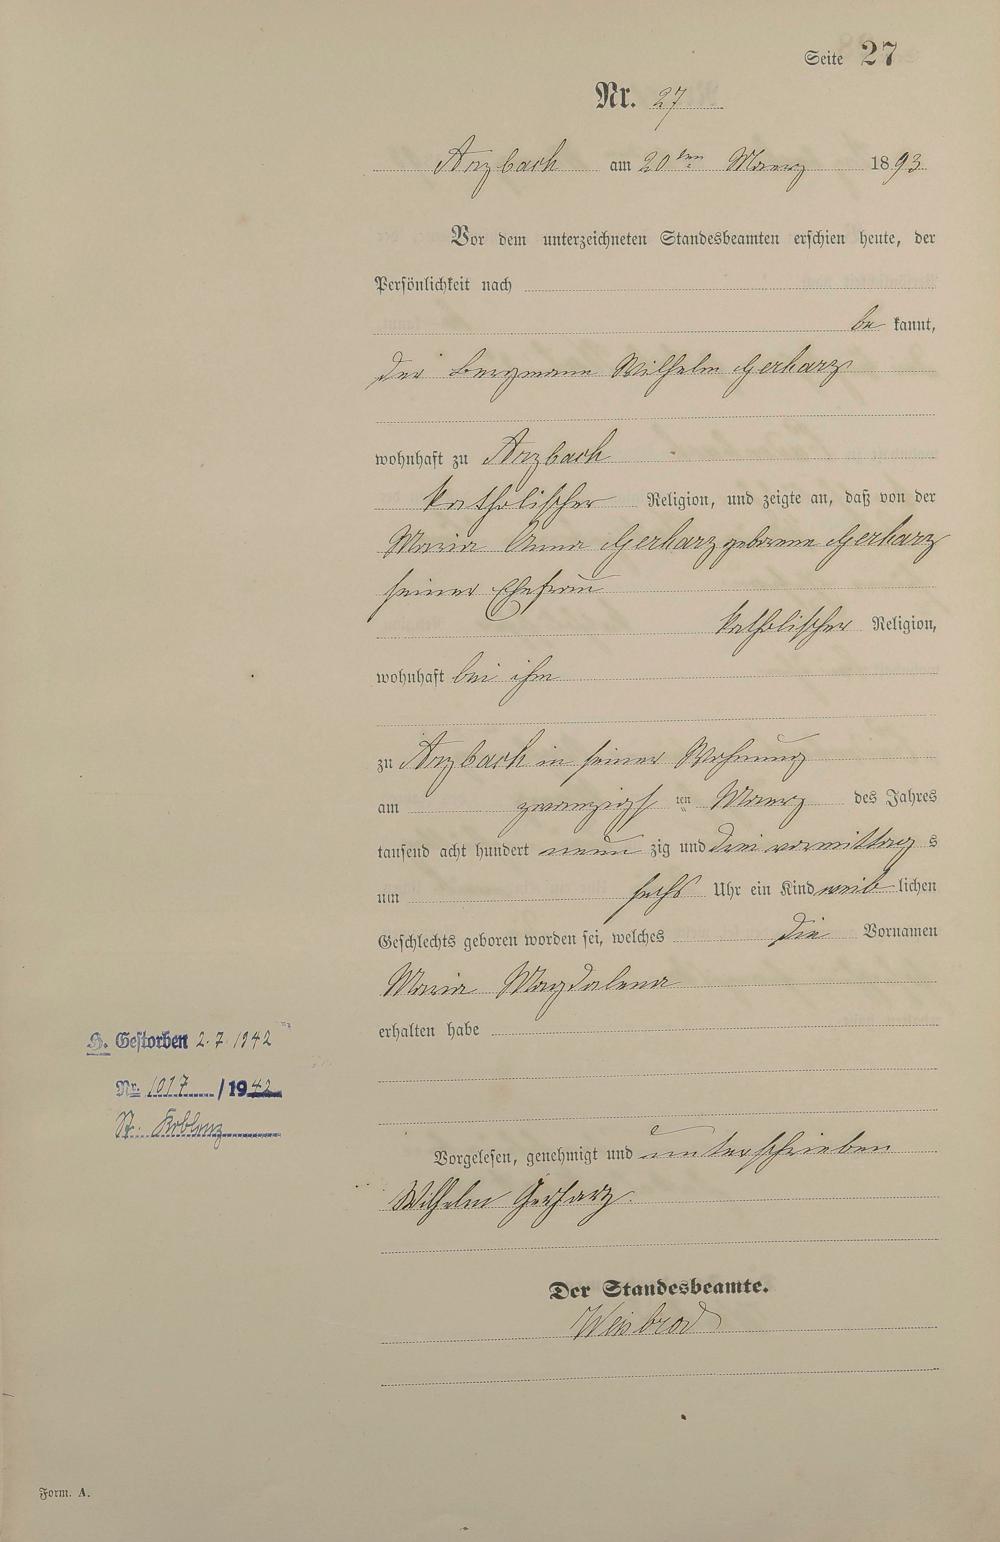 Seite 27
Nr. 27
Arzbach am 20ten Maerz 1893
Vor dem unterzeichneten Standesbeamten erschien heute, der
Persönlichkeit nach
be kannt,
der Bergmann Wilhelm Gerharz
wohnhaft zu Arzbach
katholischer Religion, und zeigte an, daß von der
Maria Anna Gerharz geborene Gerharz
seiner Ehefrau
katholischer Religion,
wohnhaft bei ihm
zu Arzbach in seiner Wohnung
am zwanzigsten Maerz des Jahres
tausend acht hundert neun zig und drei vormittag s
um sechs Uhr ein Kind weib lichen
Geschlechts geboren worden sei, welches die Vornamen
Maria Magdalena
erhalten habe
H. Gestorben 2.7.1942
Nr. 1017 /1942
St. Koblenz
Vorgelesen, genehmigt und unterschrieben
Wilhelm Gerharz
Der Standesbeamte.
Weisbrod
Form. A.